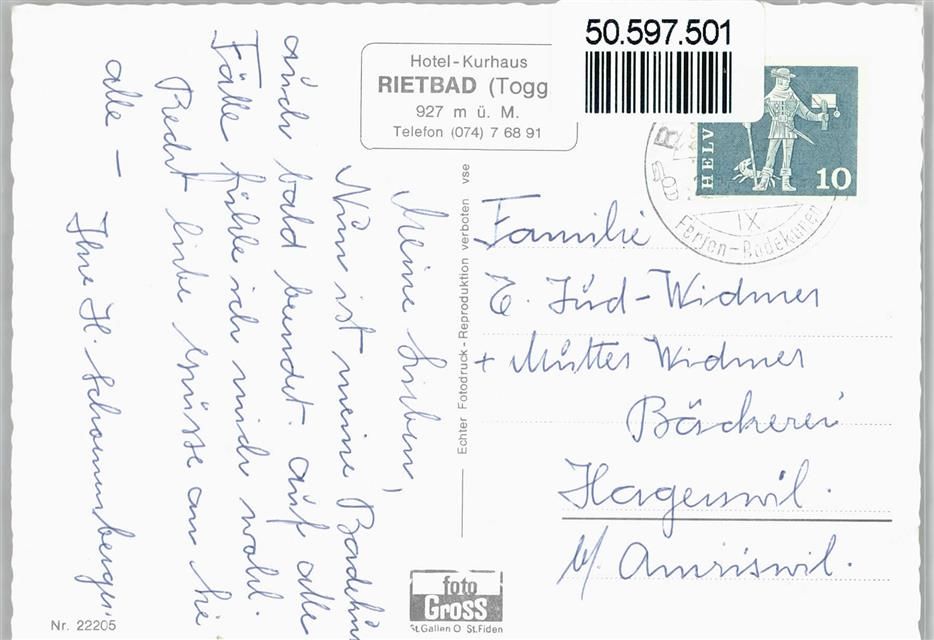 50.597.501
Hotel-Kurhaus
RIETBAD (Togg
927 m ü. M.
Telefon (074) 7 68 91
HELV
10
IX
Ferien-Badekuren
Meine Lieben,
Nun ist meine Badekur
auch bald beendet. auf alle
Fälle fühle ich mich wohl.
Recht liebe Grüsse an Sie
alle —
Ihre H.
Echter Fotodruck - Reproduktion verboten vse
Familie
E. Jüd-Widmer
+ Mutter Widmer
Bäckerei
Hagenwil.
b/ Amriswil.
foto
Gross
St.Gallen O St.Fiden
Nr. 22205